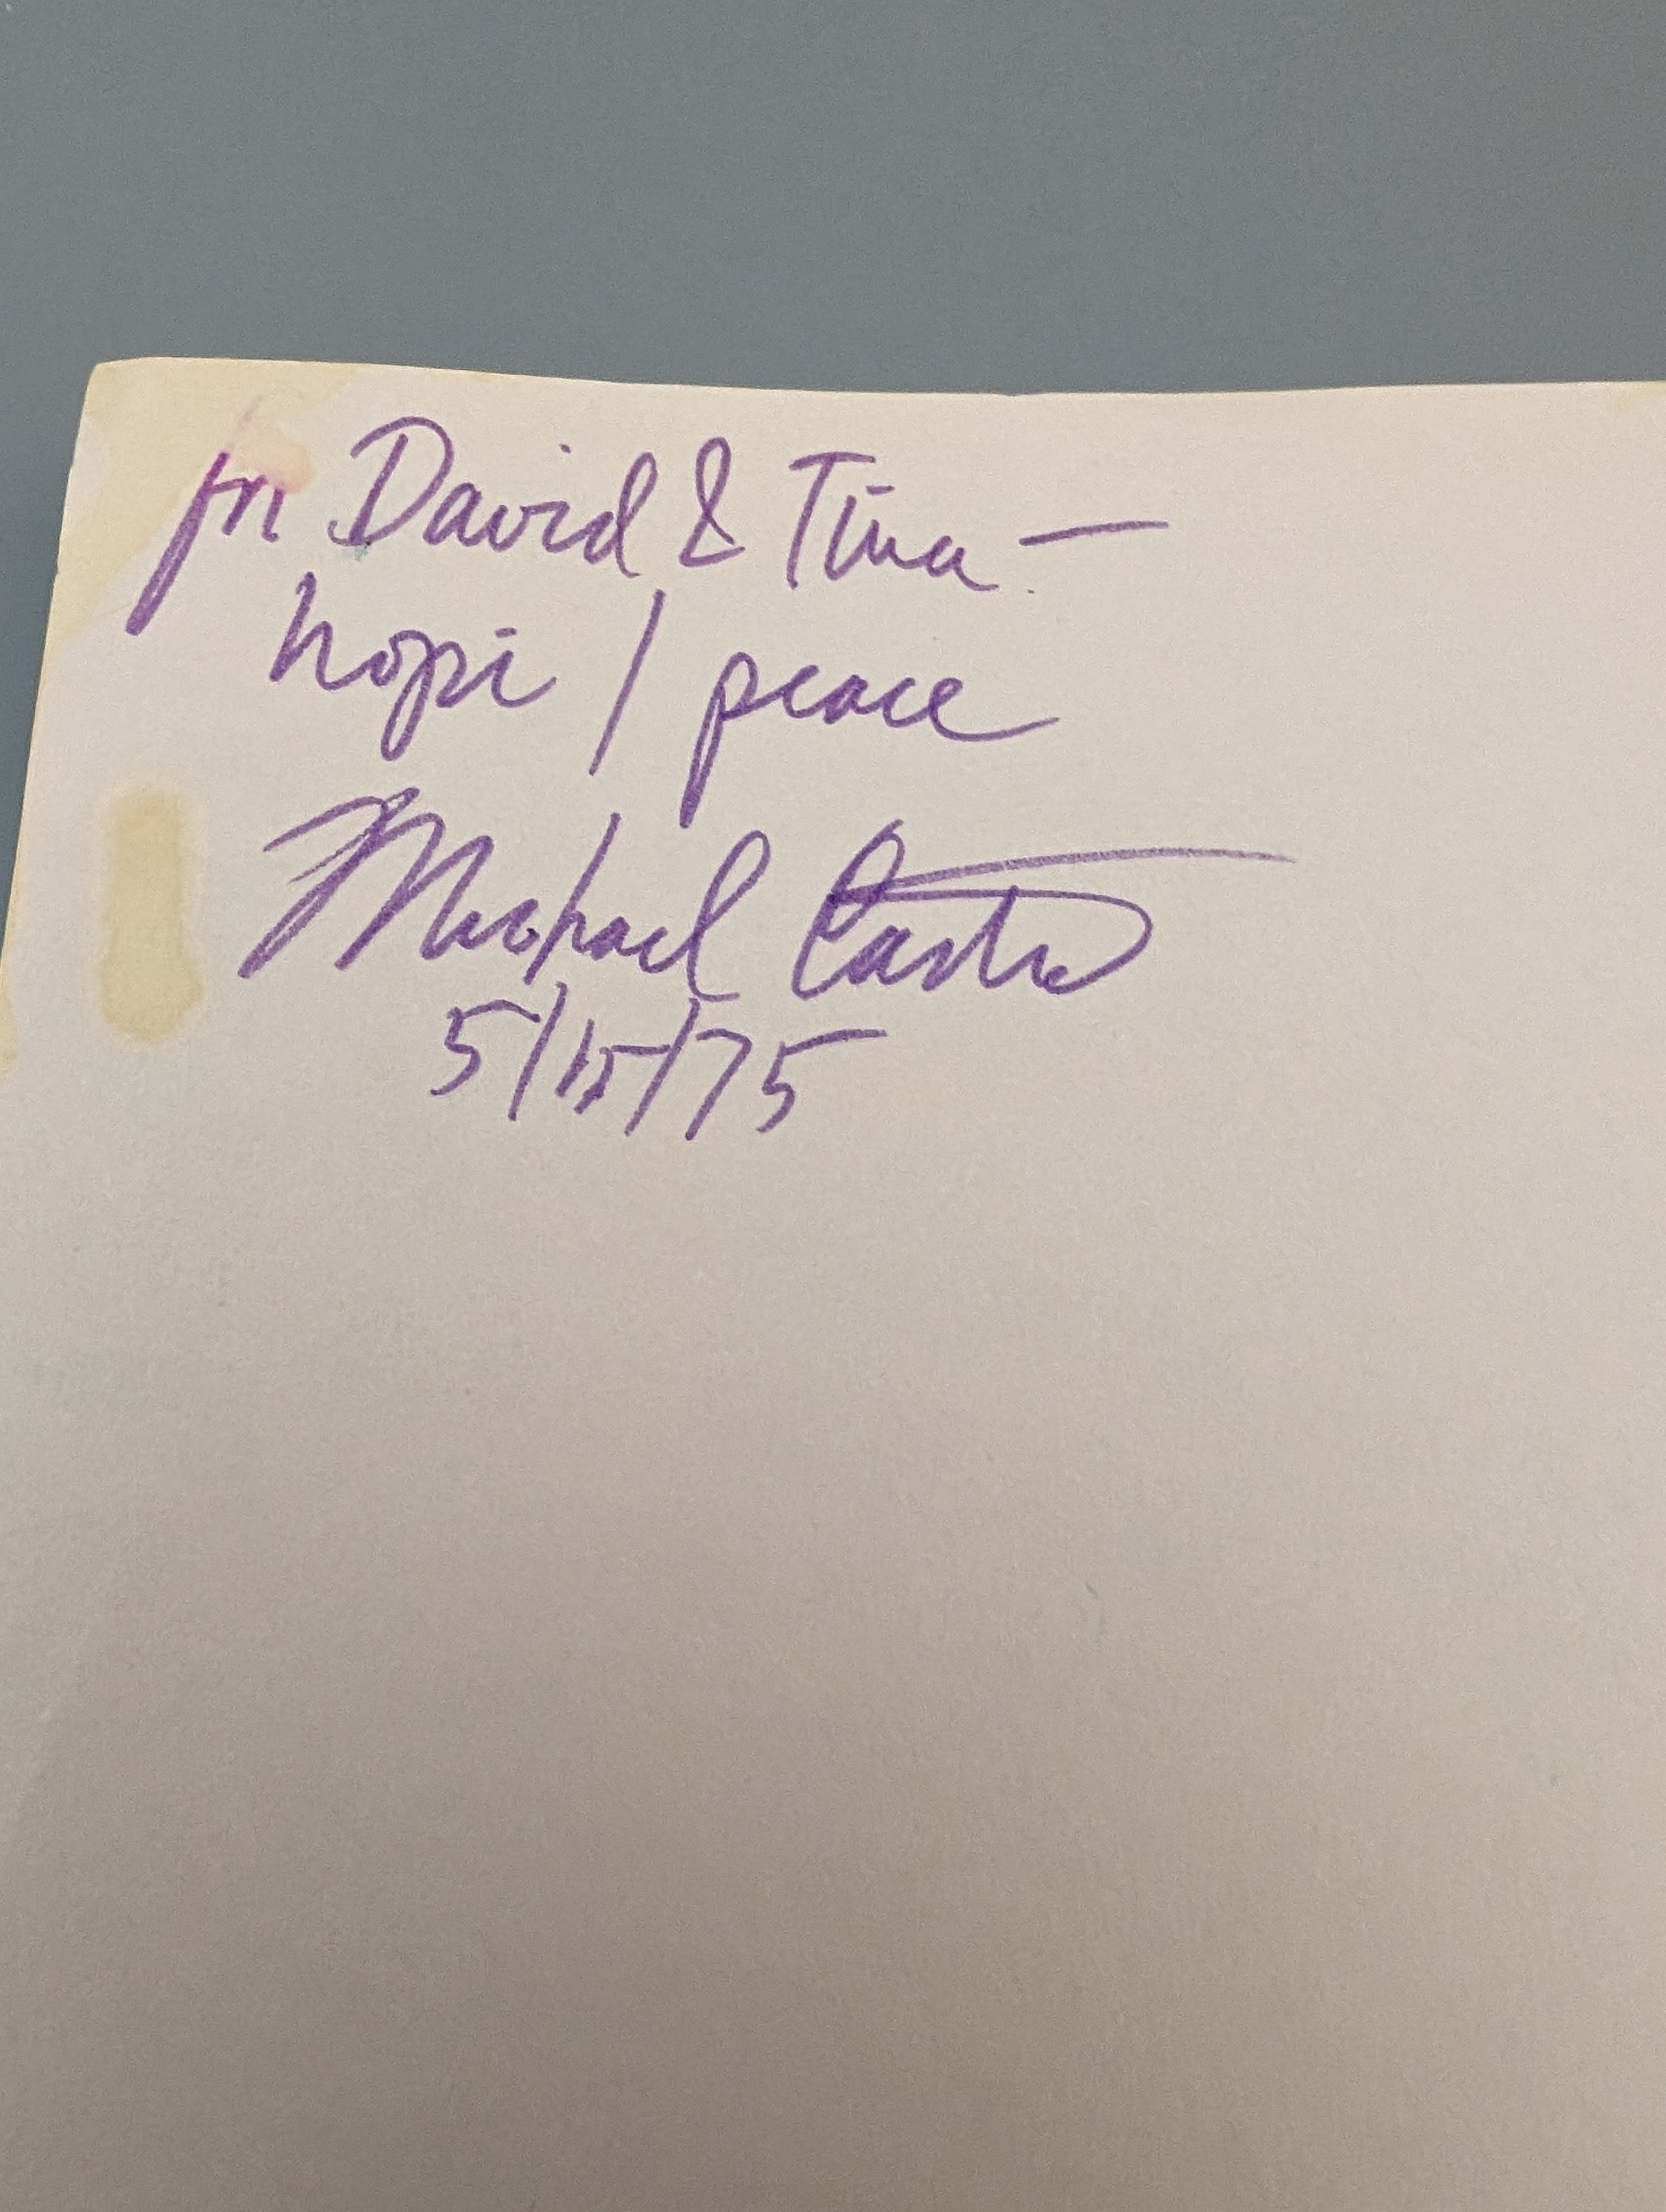 for David & Tina —
hopi / peace
Michael Castro
5/15/75